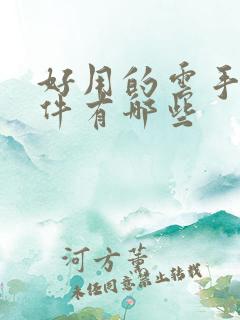 好用的云手
件有哪些
河方薰
未经同意禁止转载